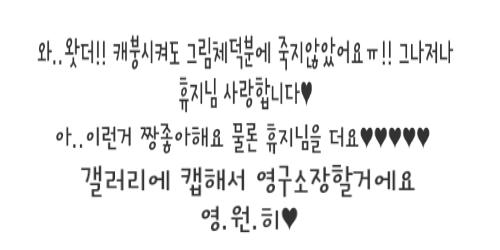 와..왓더!! 캐붕시켜도 그림체덕분에 죽지않았어요ㅠ!! 그나저나
휴지님 사랑합니다♥
아..이런거 짱좋아해요 물론 휴지님을 더요♥♥♥♥♥
갤러리에 캡해서 영구소장할거에요
영.원.히♥